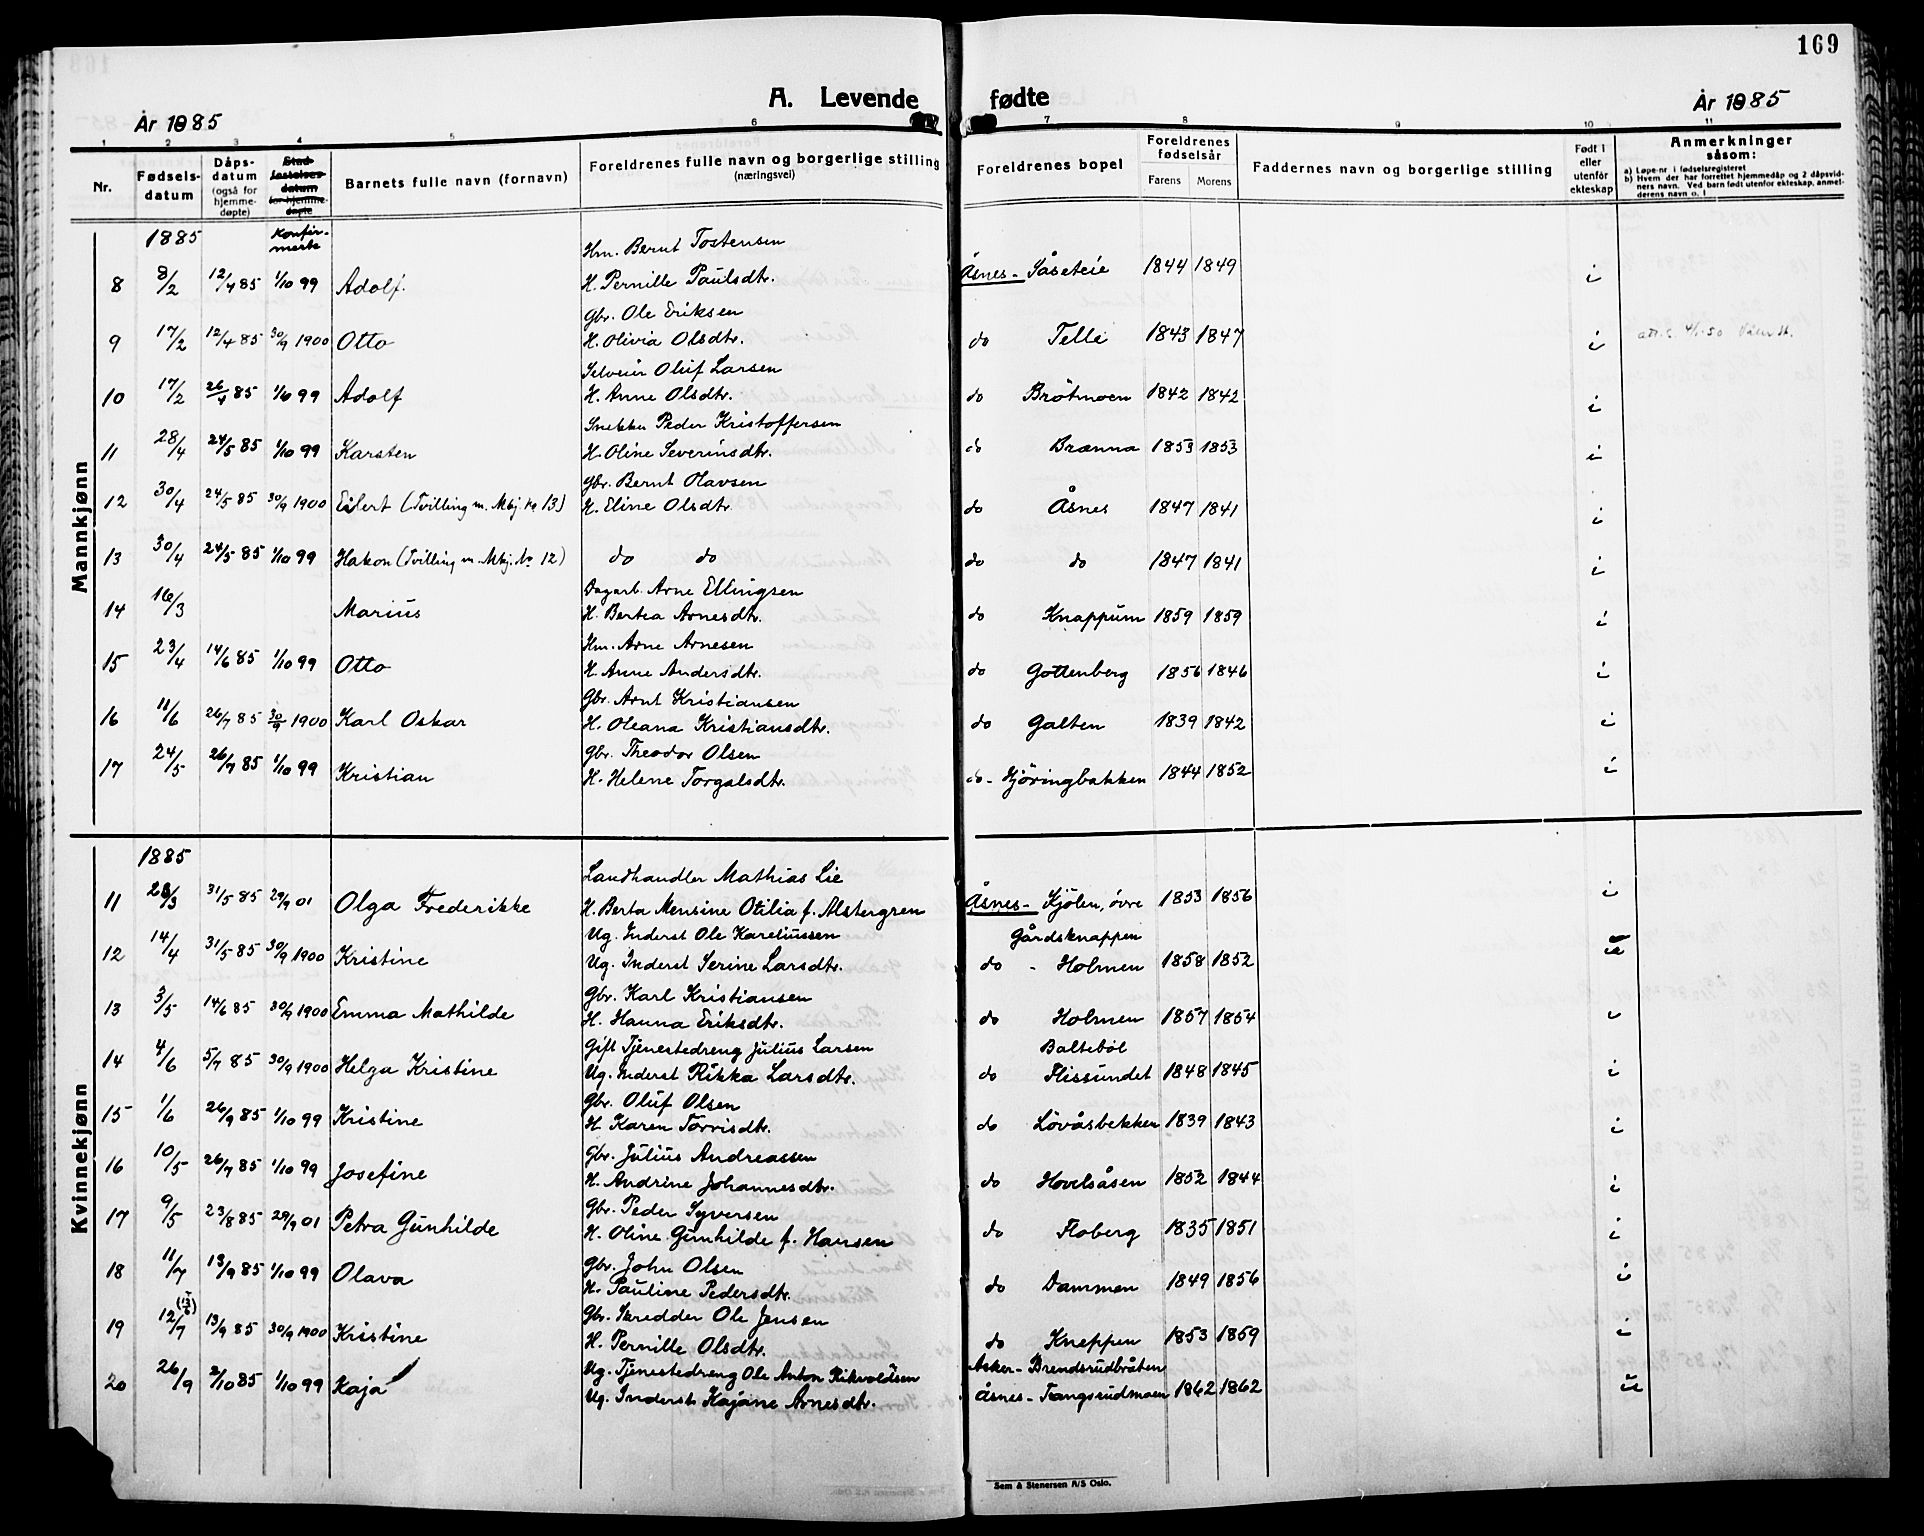 169
A. Levende fødte
År 1885
År 1885
1 2 3 4 5 6 7 8 9 10 11
Nr.
Fødsels-
datum
Dåps-
datum
(også for
hjemme-
døpte)
Stad-
festelses-
datum
for hjemme-
døpte
Barnets fulle navn (fornavn)
Foreldrenes fulle navn og borgerlige stilling
(næringsvei)
Foreldrenes bopel
Foreldrenes
fødselsår
Farens Morens
Faddernes navn og borgerlige stilling
Født i
eller
utenfor
ekteskap
Anmerkninger
såsom:
a) Løpe-nr i fødselsregisteret
b) Hvem der har forrettet hjemmedåp og 2 dåpsvid-
ners navn. Ved barn født utenfor ekteskap, anmel-
derens navn o. l
Mannkjønn
1885 Konfir-
merte
Hm. Bernt Tostensen
8 8/2 12/4 85 1/10 99 Adolf. H. Pernille Paulsdtr. Åsnes - Såseteie 1844 1849 i
Gbr. Ole Eriksen
9 17/2 12/4 85 30/9 1900 Otto H. Olivia Olsdtr. do Telle 1843 1847 i 4/1-50
Selveier Oluf Larsen
10 17/2 26/4 85 1/10 99 Adolf H. Anne Olsdtr. do Bråtmoen 1842 1842 i
Snekker Peder Kristoffersen
11 28/4 24/5 85 1/10 99 Karsten H. Oline Severinsdtr. do Brænna 1853 1853 i
Gbr. Bernt Olavsen
12 30/4 24/5 85 30/9 1900 Eilert (Tvilling m. Mkj. No 13) H. Eline Olsdtr. do Åsnes 1847 1841 i
13 30/4 24/5 85 1/10 99 Hakon (Tvilling m. Mkj. No 12) do do do do 1847 1841 i
Dagarb. Arne Ellingsen
14 16/3 Marius H. Bertea Arnesdtr. do Knappum 1859 1859 i
Hm. Arne Arnesen
15 23/4 14/6 85 1/10 99 Otto H. Anne Andersdtr. do Gottenberg 1856 1846 i
Gbr. Arnt Kristiansen
16 11/6 26/7 85 30/9 1900 Karl Oskar H. Oleana Kristiansdtr. do Galten 1839 1842 i
Gbr. Theodor Olsen
17 24/5 26/7 85 1/10 99 Kristian H. Helene Torgalsdtr. do - Kjöringbakken 1844 1852 i
Kvinnekjønn
1885
Landhandler Mathias Lie
11 28/3 31/5 85 29/9 01 Olga Frederikke H. Berta Mensine Otilia f. Alstergren Åsnes - Kjölen, övre 1853 1856 i
Ug. Inderst Ole Kareliussen Gårdsknappen
12 14/4 31/5 85 30/9 1900 Kristine Ug. Inderst Serine Larsdtr. do - Holmen 1858 1852 u
Gbr. Karl Kristiansen
13 3/5 14/6 85 30/9 1900 Emma Mathilde H. Hanna Eriksdtr. do Holmen 1857 1854 i
Gift Tjenestedreng Julius Larsen Balteböl
14 4/6 5/7 85 30/9 1900 Helga Kristine Ug. Inderst Rikka Larsdtr. do Flissundet 1848 1845 i
Gbr. Oluf Olsen
15 1/6 26/9 85 1/10 99 Kristine H. Karen Torrisdtr. do Lövåsbekken 1839 1843 i
Gbr. Julius Andreassen
16 10/5 26/7 85 1/10 99 Josefine H. Andrine Johannesdtr. do Hovelsåsen 1852 1844 i
Gbr. Peder Syversen
17 9/5 23/8 85 29/9 01 Petra Gunhilde H. Oline Gunhilde f. Hansen do Floberg 1835 1851 i
Gbr. John Olsen
18 11/7 13/9 85 1/10 99 Olava H. Pauline Pedersdtr. do Dammen 1849 1856 i
Gbr. Skredder Ole Jensen
19 12/7 13/9 85 30/9 1900 Kristine H. Pernille Olsdtr. do Kneppen 1853 1859 i
Ug. Tjenestedreng Ole Anton Rikvoldsen Asker - Brendsrudbråten
20 26/9 2/10 85 1/10 99 Kaja Ug. Inderst Kajane Arnesdtr. Åsnes - Tangsrudmoen 1862 1862 u
Sem & Stenersen A/S Oslo.